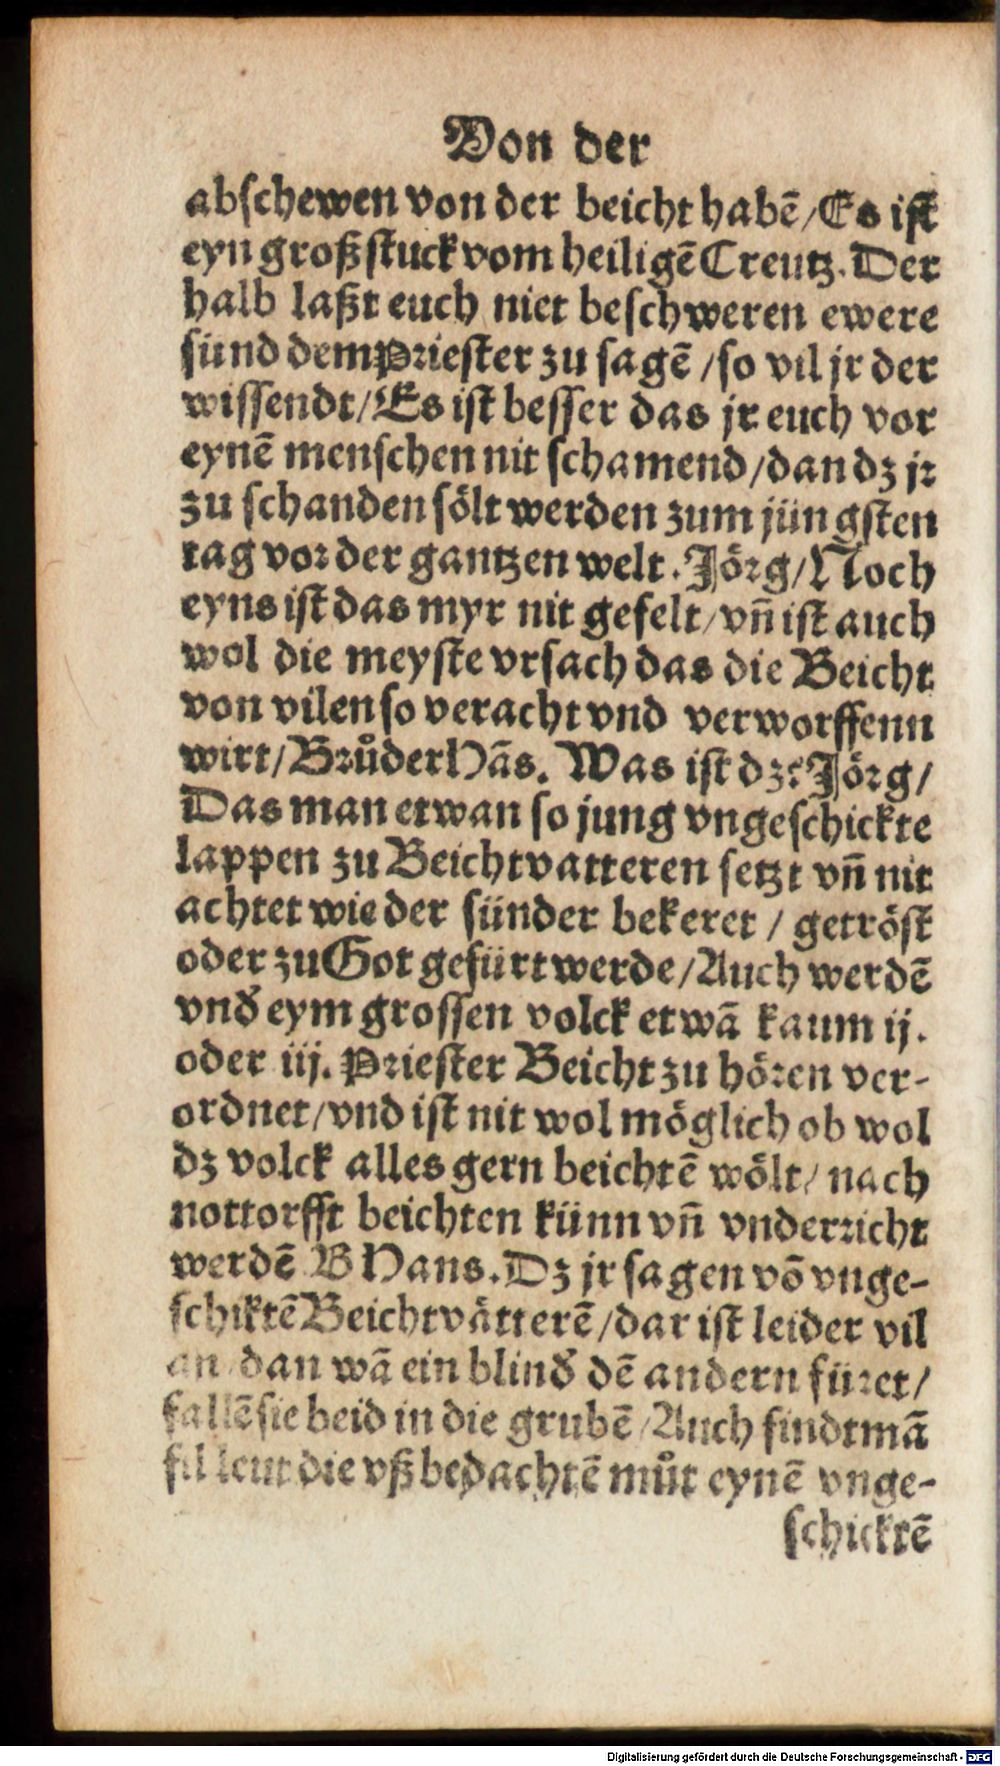 Von der
abschewen von der beicht habē / Es ist
eyn groß stuck vom heiligē Creutz. Der
halb laßt euch niet beschweren ewere
sünd dem Priester zu sagē / so vil jr der
wissendt / Es ist besser das jr euch vor
eynē menschen nit schamend / dan dz jr
zu schanden sölt werden zum jüngsten
tag vor der gantzen welt. Jörg / Noch
eyns ist das myr nit gefelt / vn̄ ist auch
wol die meyste vrsach das die Beicht
von vilen so veracht vnd verworffenn
wirt / Brůder Hās. Was ist dz? Jörg /
Das man etwan so jung vngeschickte
lappen zu Beichtvatteren setzt vn̄ nit
achtet wie der sünder bekeret / getröst
oder zu Got gefürt werde / Auch werdē
vnď eym grossen volck etwā kaum ij.
oder iij. Priester Beicht zu hören ver-
ordnet / vnd ist nit wol möglich ob wol
dz volck alles gern beichtē wölt / nach
nottorfft beichten künn vn̄ vnderricht
werdē B Hans. Dz jr sagen vō vnge-
schiktē Beichtvätterē / dar ist leider vil
an / dan wā ein blinď dē andern füret /
fallē sie beid in die grubē / Auch findt mā
fil leut die vß bedachtē můt eynē vnge-
schicktē
Digitalisierung gefördert durch die Deutsche Forschungsgemeinschaft - DFG